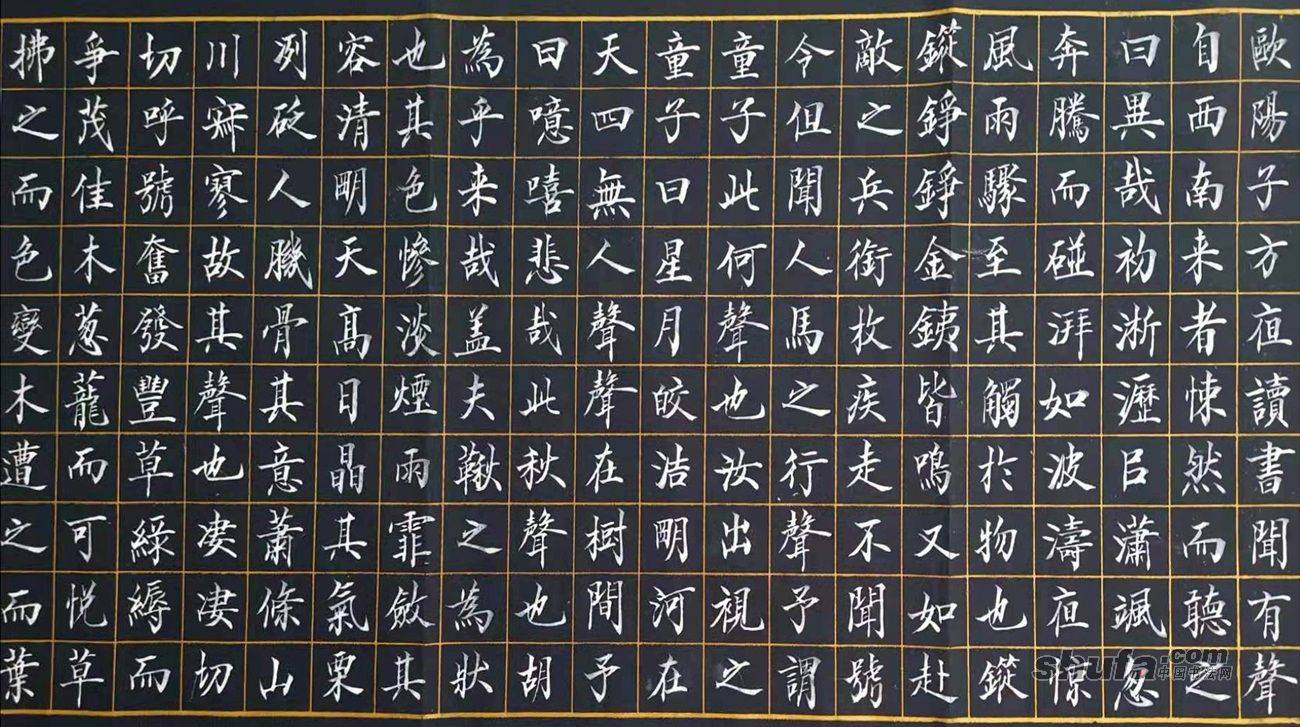 歐陽子方夜讀書聞有聲
自西南来者悚然而聽之
曰異哉初淅瀝㠯瀟颯忽
奔騰而碰湃如波濤夜惊
風雨驟至其觸於物也鏦
鏦錚錚金銕皆鳴又如赴
敵之兵銜枚疾走不聞號
令但聞人馬之行聲予謂
童子此何聲也汝出視之
童子曰星月皎洁眀河在
天四無人聲聲在樹間予
曰噫嘻悲哉此秋聲也胡
為乎来哉盖夫鞦之為狀
也其色慘淡煙雨霏斂其
容清眀天高日晶其氣栗
冽砭人骨其意蕭條山
川寂寥故其聲也凄凄切
切呼號奮發豐草綠縟而
爭茂佳木葱蘢而可悅草
拂之而色變木遭之而葉
shufa.com
中国书法网